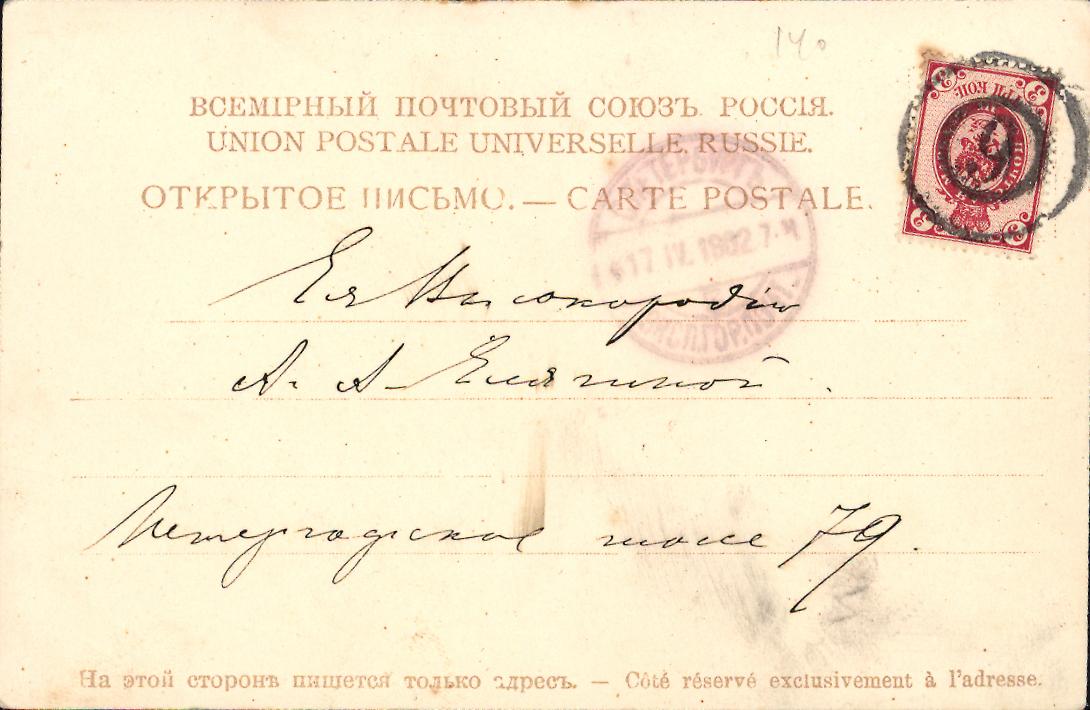 140
ВСЕМІРНЫЙ ПОЧТОВЫЙ СОЮЗЪ. РОССІЯ.
UNION POSTALE UNIVERSELLE. RUSSIE.
ОТКРЫТОЕ ПИСЬМО. — CARTE POSTALE.
3 3 3 3
КОП.
ПОЧТ
9
С.ПЕТЕРБУРГЪ
17 IV. 1902 7 Ч
ГОР.ПОЧ.
Ея Высокородію
А. А. Елягиной
Петергофское шоссе 79.
На этой сторонѣ пищется только адресъ. — Côté réservé exclusivement à l'adresse.